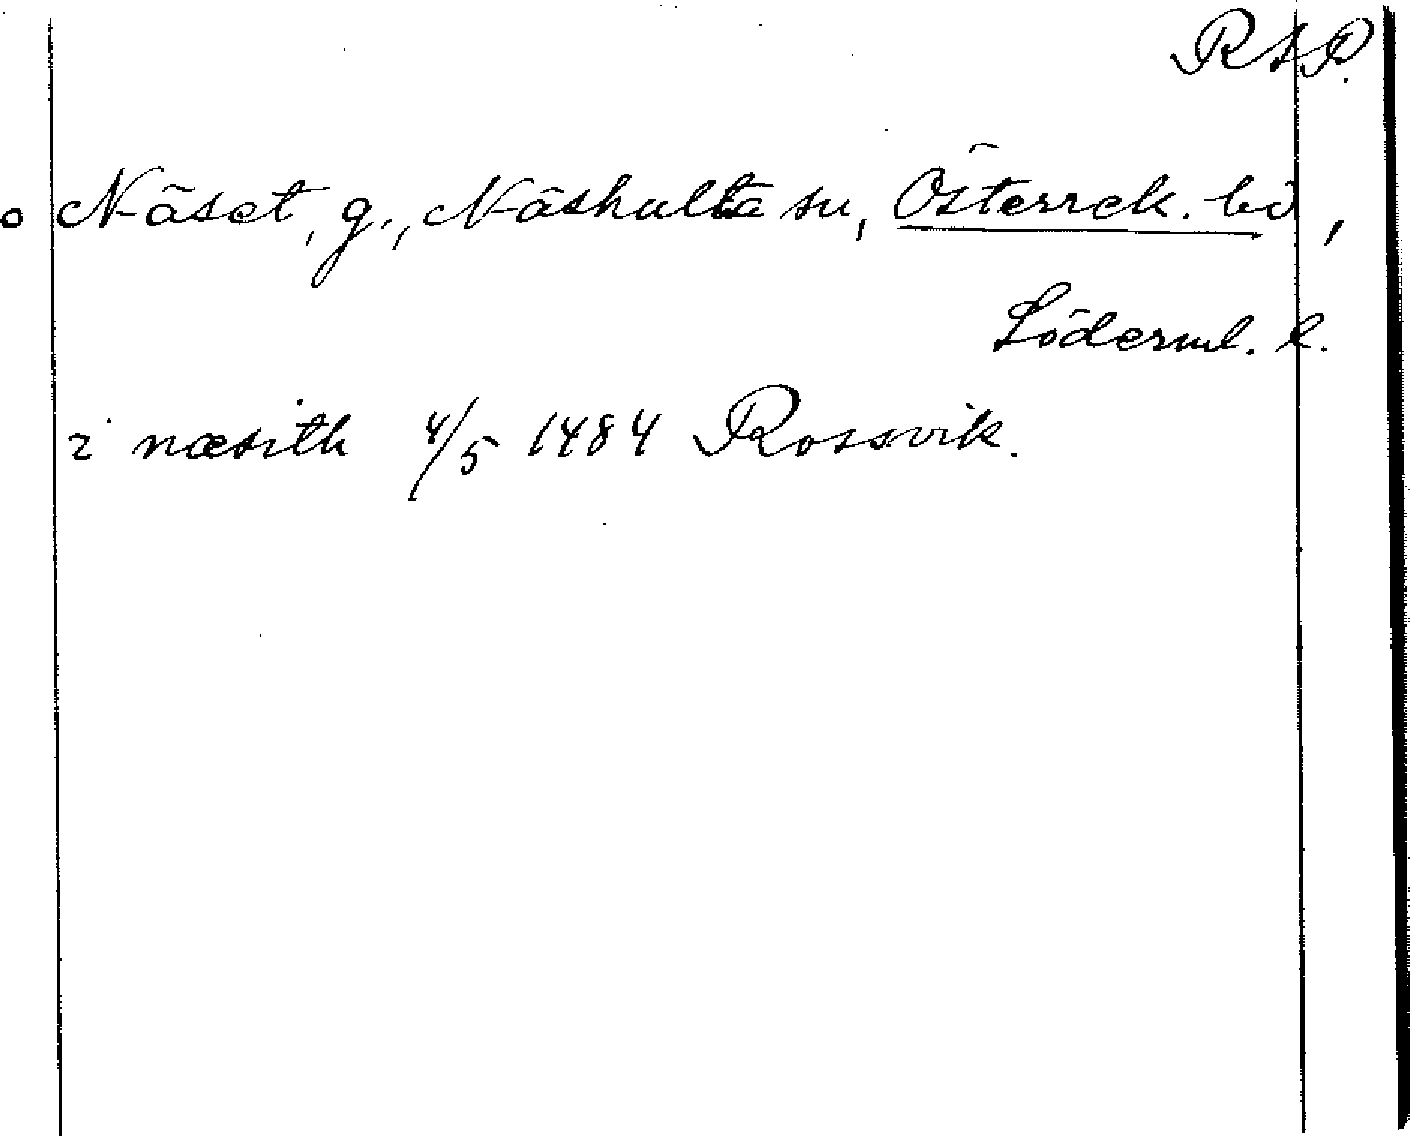 RAP.
o Näset, g., Näshulta sn, Österrek. hd,
Söderml. l.
i næsith 4/5 1484 Rossvik.